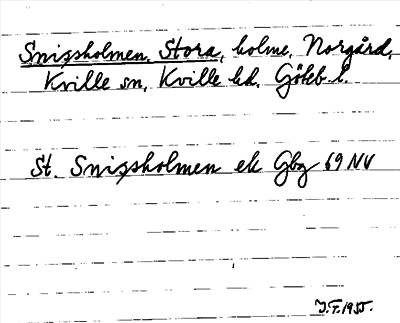 Snissholmen, Stora, holme, Norgård,
Kville sn, Kville hd, Göteb. l.
St. Snissholmen ek Gbg 69 NV
J.F. 1955.